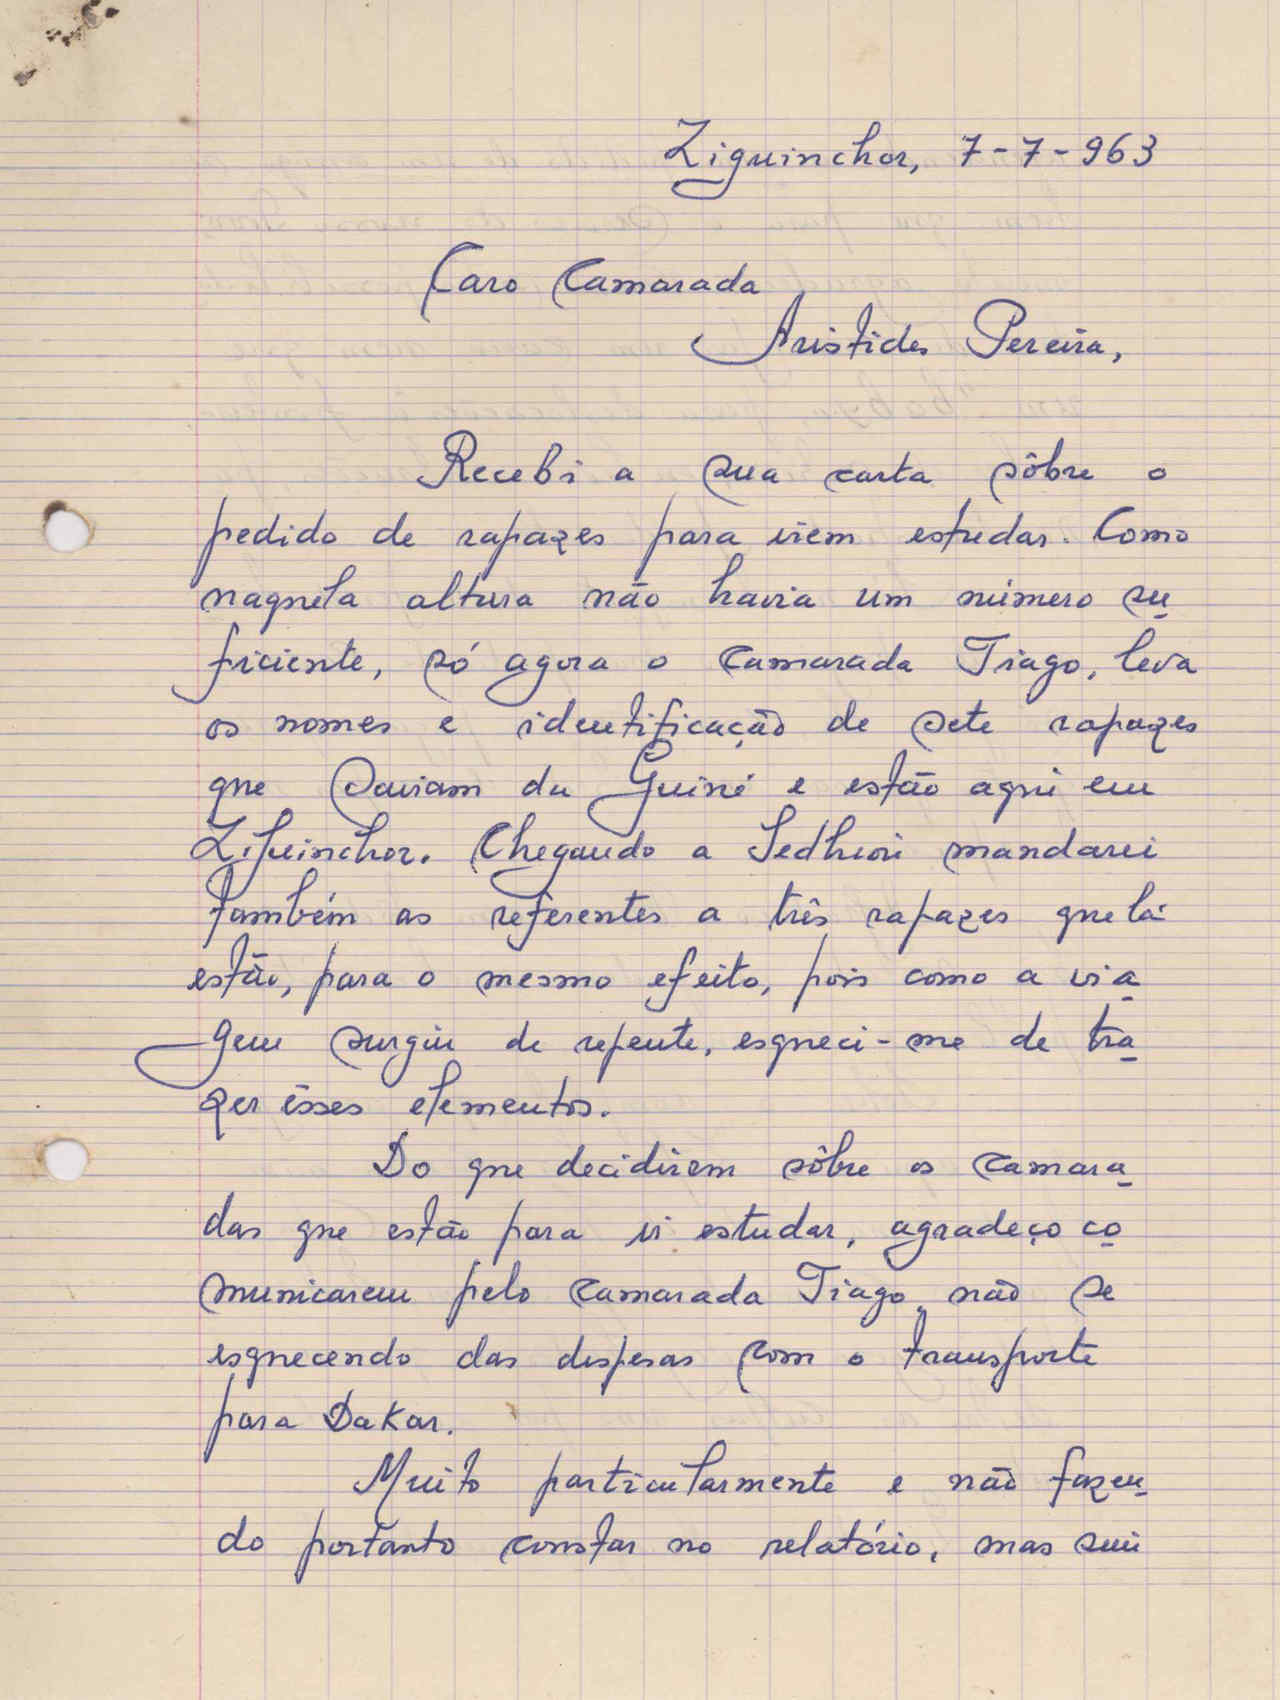 Ziguinchor, 7-7-963
Caro Camarada
Aristides Pereira,
Recebi a sua carta sôbre o
pedido de rapazes para irem estudar. Como
naquela altura não havia um número su
ficiente, só agora o camarada Tiago, leva
os nomes e identificação de sete rapazes
que saviam da Guiné e estão aqui em
Ziguinchor. Chegando a Sedhiou mandarei
também as referentes a três rapazes que lá
estão, para o mesmo efeito, pois como a via
gem surgiu de repente, esqueci-me de tra
zer êsses elementos.
Do que decidirem sôbre os camara
das que estão para ir estudar, agradeço co
municarem pelo camarada Tiago, não se
esquecendo das despesas com o transporte
para Dakar.
Muito particularmente e não fazen
do portanto constar no relatório, mas sim